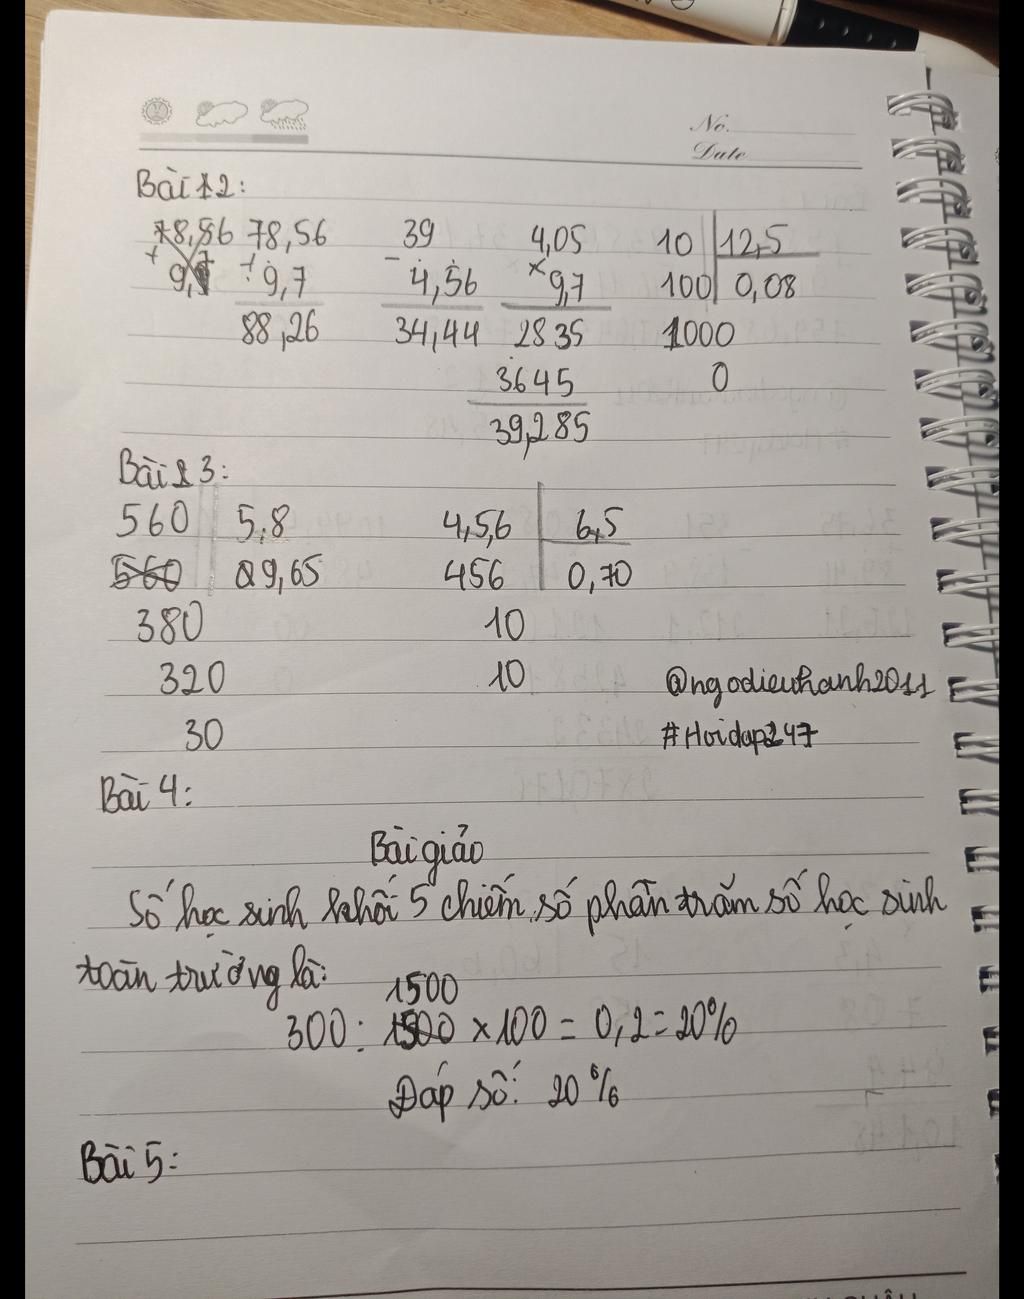 No.
Date
Bài 12:
78,56 78,56 39 4,05 10 12,5
+ 9, + 9,7 - 4,56 × 9,7 100 0,08
88,26 34,44 2835 1000
3645 0
39,285
Bài 3:
560 5,8 4,5,6 6,5
560 89,65 456 0,70
380 10
320 10 @ngodieuhanh2011
30 #Hoidap247
Bài 4:
Bài giảo
Số học sinh khối 5 chiếm số phần trăm số học sinh
toàn trường là:
1500
300 : 1500 × 100 = 0,2 = 20%
Đáp số: 20%
Bài 5: